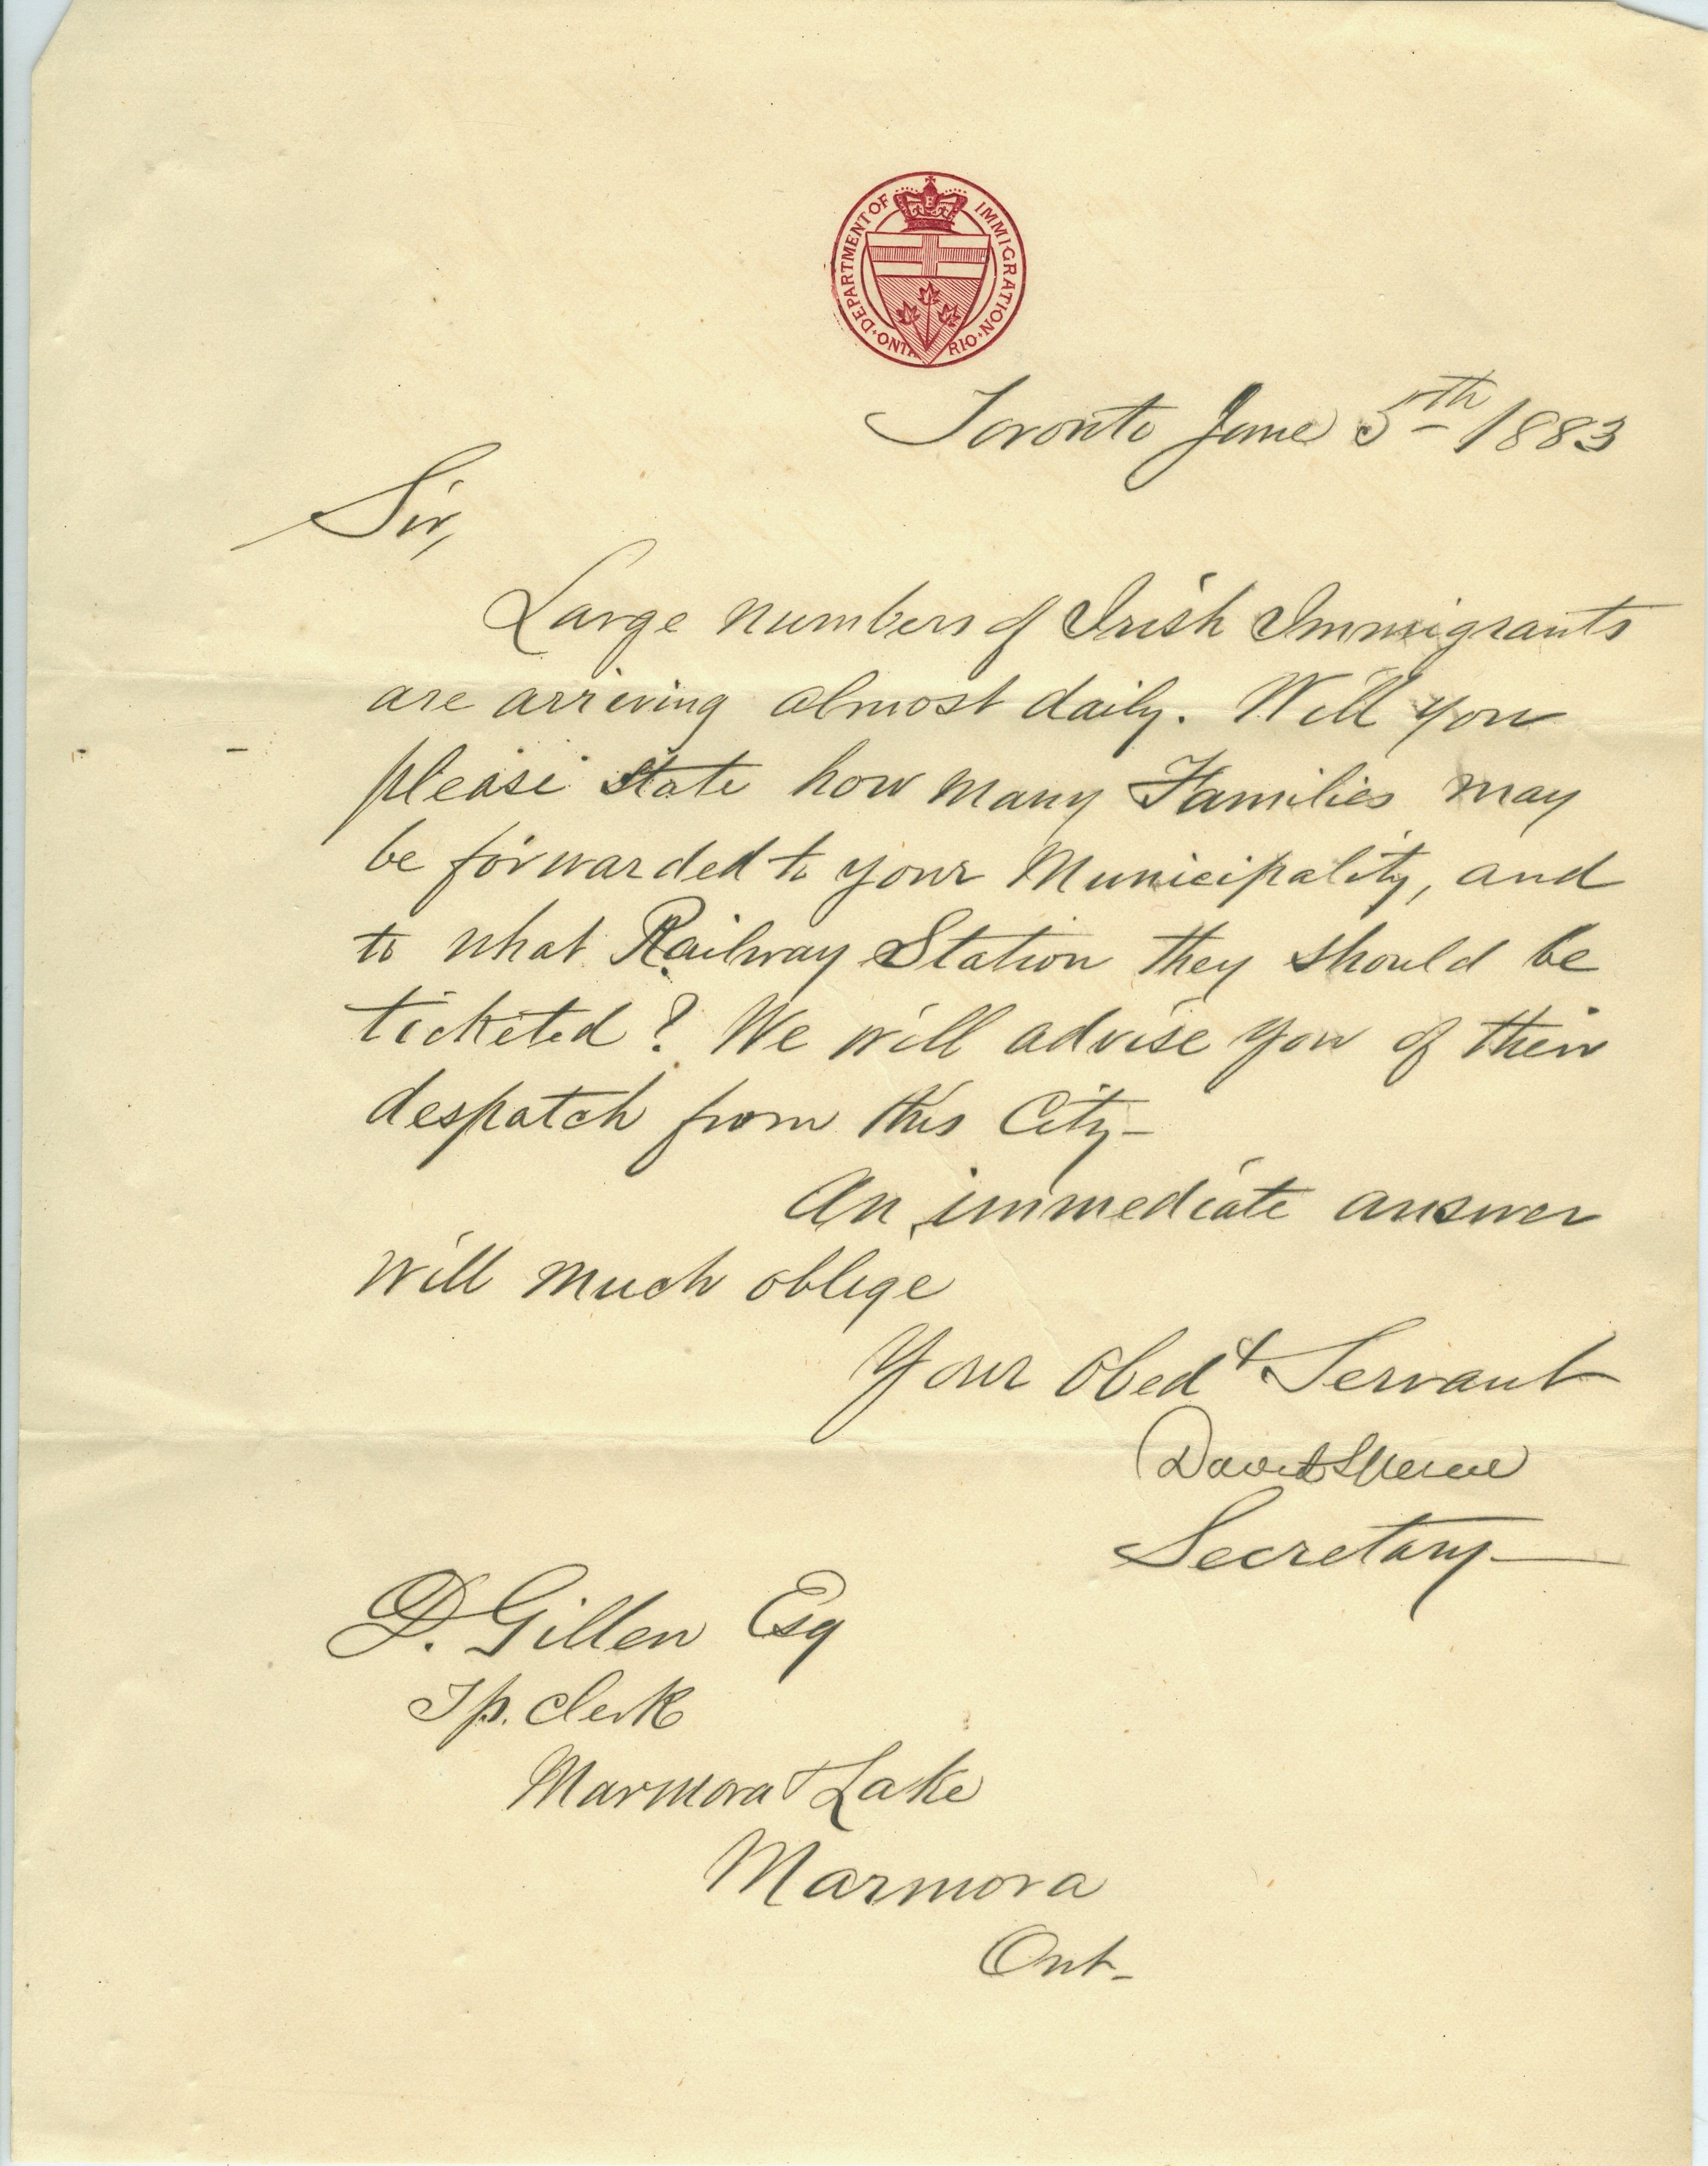 DEPARTMENT OF IMMIGRATION ONTARIO
Toronto June 5th 1883
Sir,
Large numbers of Irish Immigrants
are arriving almost daily. Will you
please state how many Families may
be forwarded to your Municipality, and
to what Railway Station they should be
ticketed? We will advise you of their
despatch from this City-
An immediate answer
will much oblige
Your Obedt Servant
David Spence
Secretary
D. Gillen Esq
Tp. Clerk
Marmora & Lake
Marmora
Ont-